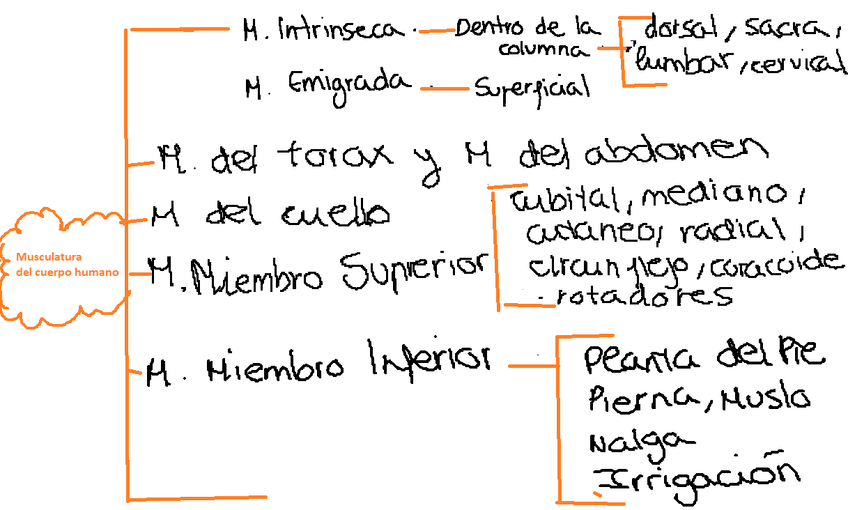 M. Intrinseca - Dentro de la columna - dorsal, sacra, lumbar, cervical
M. Emigrada - Superficial
M. del torax y M del abdomen
M del cuello
Musculatura
del cuerpo humano
M. Miembro Superior
cubital, mediano,
cutaneo, radial,
circunflejo, coracoide
rotadores
M. Miembro Inferior
Planta del Pie
Pierna, Muslo
Nalga
Irrigación